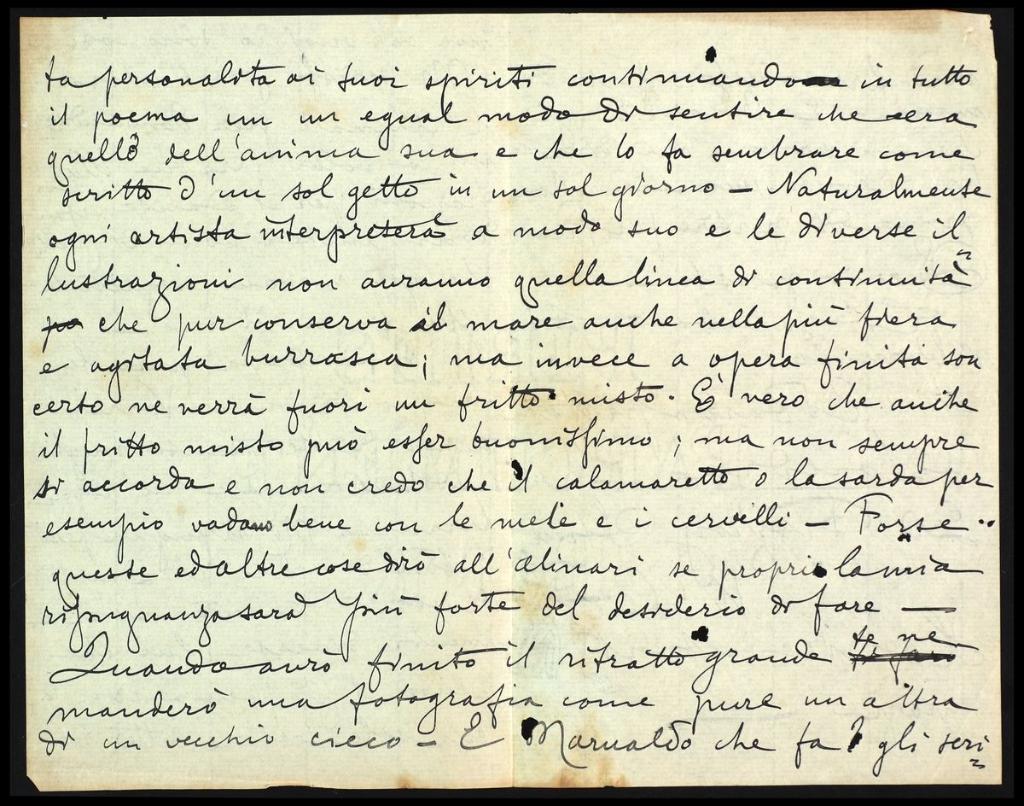 ta personalità ai suoi spiriti continuando in tutto
il poema un un egual modo di sentire che era
quello dell'anima sua e che lo fa sembrare come
scritto d'un sol getto in un sol giorno – Naturalmente
ogni artista interpreterà a modo suo e le diverse il
lustrazioni non avranno quella linea di continuità
che pur conserva il mare anche nella più fiera
e agitata burrasca; ma invece a opera finita son
certo ne verrà fuori un fritto misto. È vero che anche
il fritto misto può esser buonissimo; ma non sempre
si accorda e non credo che il calamaretto o la sarda per
esempio vadano bene con le mele e i cervelli – Forse..
queste ed altre cose dirò all'Alinari se proprio la mia
ripugnanza sarà più forte del desiderio di fare –
Quando avrò finito il ritratto grande te ne
manderò una fotografia come pure un altra
di un vecchio cieco – E Marualdo che fa? gli scri